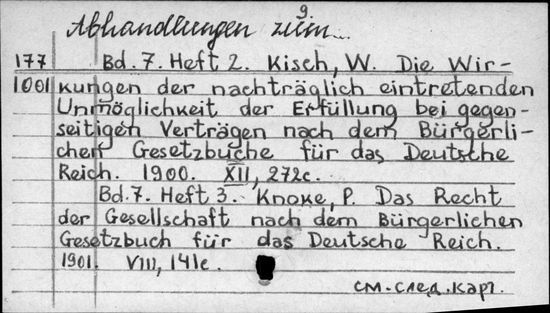 9
Abhandlungen zum...
177 Bd. 7. Heft 2. Kisch, W. Die Wir-
1001 kungen der nachträglich eintretenden
Unmöglichkeit der Erfüllung bei gegen-
seitigen Verträgen nach dem Bürgerli-
chen Gesetzbuche für das Deutsche
Reich. 1900. XII, 272c.
Bd. 7. Heft 3. Knoke, P. Das Recht
der Gesellschaft nach dem Bürgerlichen
Gesetzbuch für das Deutsche Reich.
1901. VIII, 141c.
см. след. карт.